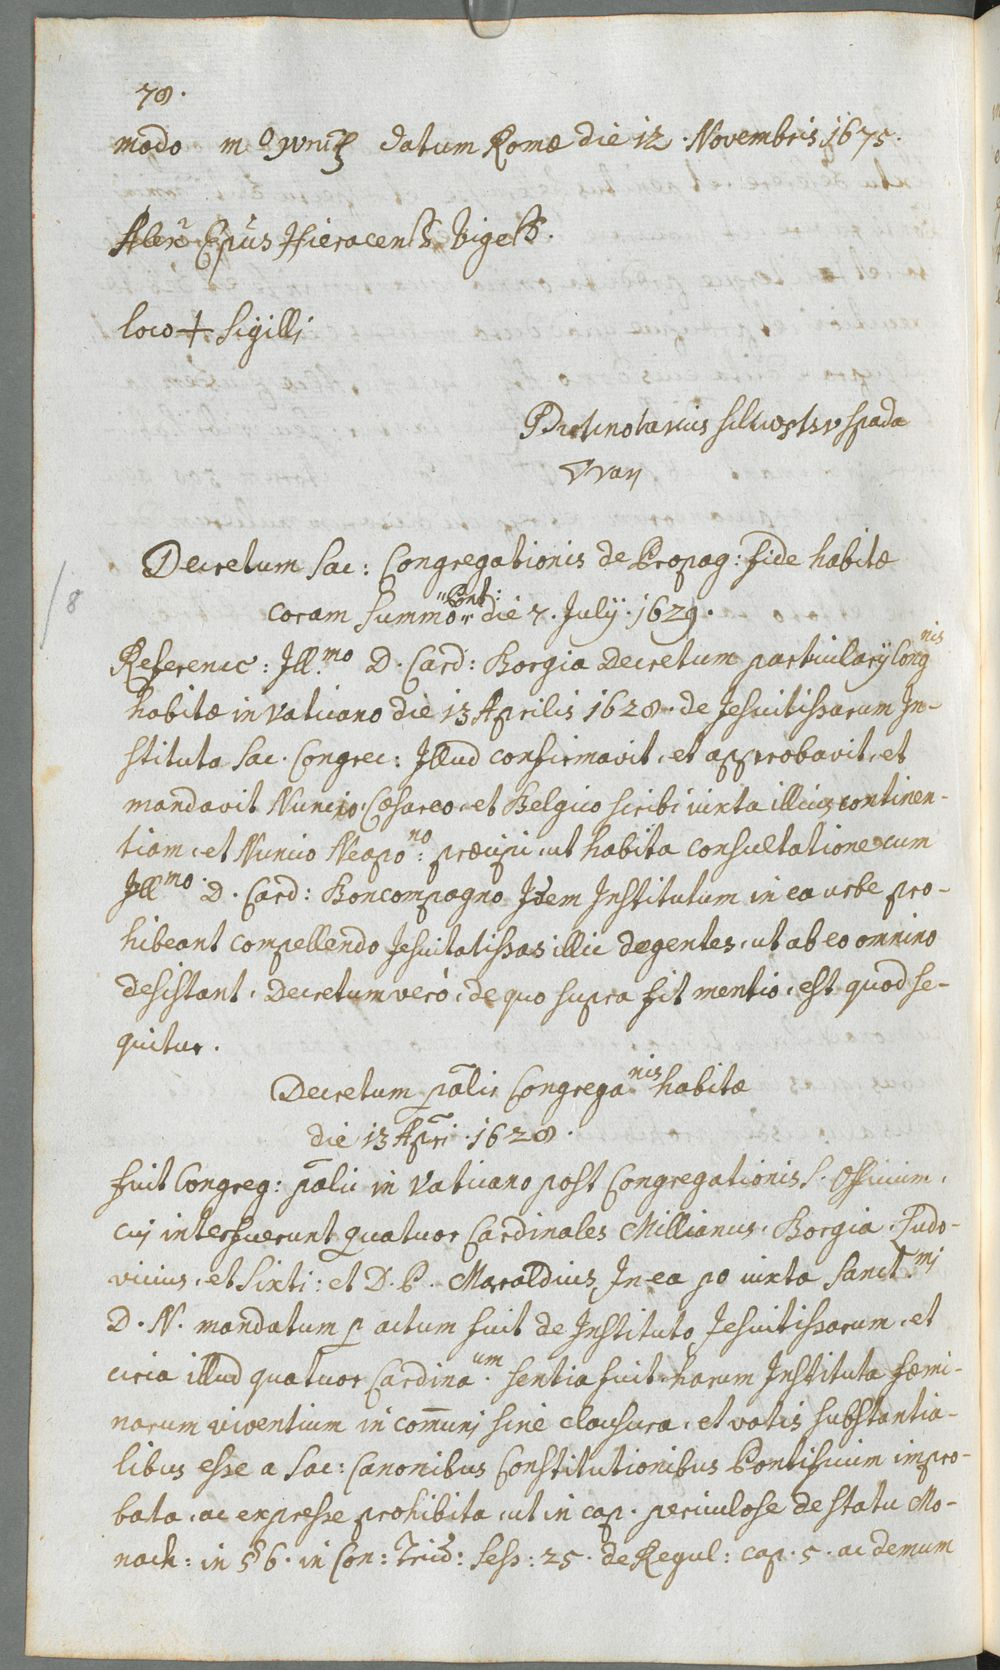 78.
modo m datum Romæ die 12. Novembris 1675.
Epũs Hieracens Viges.
loco + Sigilli
Spada
Decretum Sac: Congregationis de Propag: fide habitæ
8
coram Summo Pont: die 7. Julÿ. 1629.
Referenc: Jll.mo D. Card: Borgia Decretum particularis Congnis
habitæ in Vaticano die 13 Aprilis 1628. de Jesuitissarum Jn-
stituta Sac. Congrec: Jllud confirmavit, et approbavit, et
mandavit Nuncio Cæsareo, et Belgico scribi iuxta illius continen-
tiam, et Nuncio Neapono: præcipi, ut habita consultatione cum
Jllmo. D. Card: Boncompagno Jdem Jnstitutum in ea urbe pro-
hibeant compellendo Jesuitatissas illic degentes, ut ab eo omnino
desistant. Decretum verò, de quo supra fit mentio, est quod se-
quitur.
Decretum pãlis Congreganis habitæ
die 13 Apri. 1628.
fuit Congreg: pãlis in Vaticano post Congregationis S. Officium,
cui interfuerunt quatuor Cardinales Millianus, Borgia, Ludo-
vicius, et Sixti: et D. P. Maraldius, Jn ea po iuxta Sanct.mi
D. N. mandatum actum fuit de Jnstituto Jesuitissarum, et
circa illud quatuor Cardina.um sentia fuit, harum Jnstituta fæmi-
narum viventium in com̃uni sine clausura, et votis substantia-
libus esse a Sac: Canonibus Constitutionibus Pontificum impro-
bata, ac expresse prohibita, ut in cap. periculose de statu Mo-
nach: in 6. in Con: Trid: Sess: 25. de Regul: cap. 5. ac demum